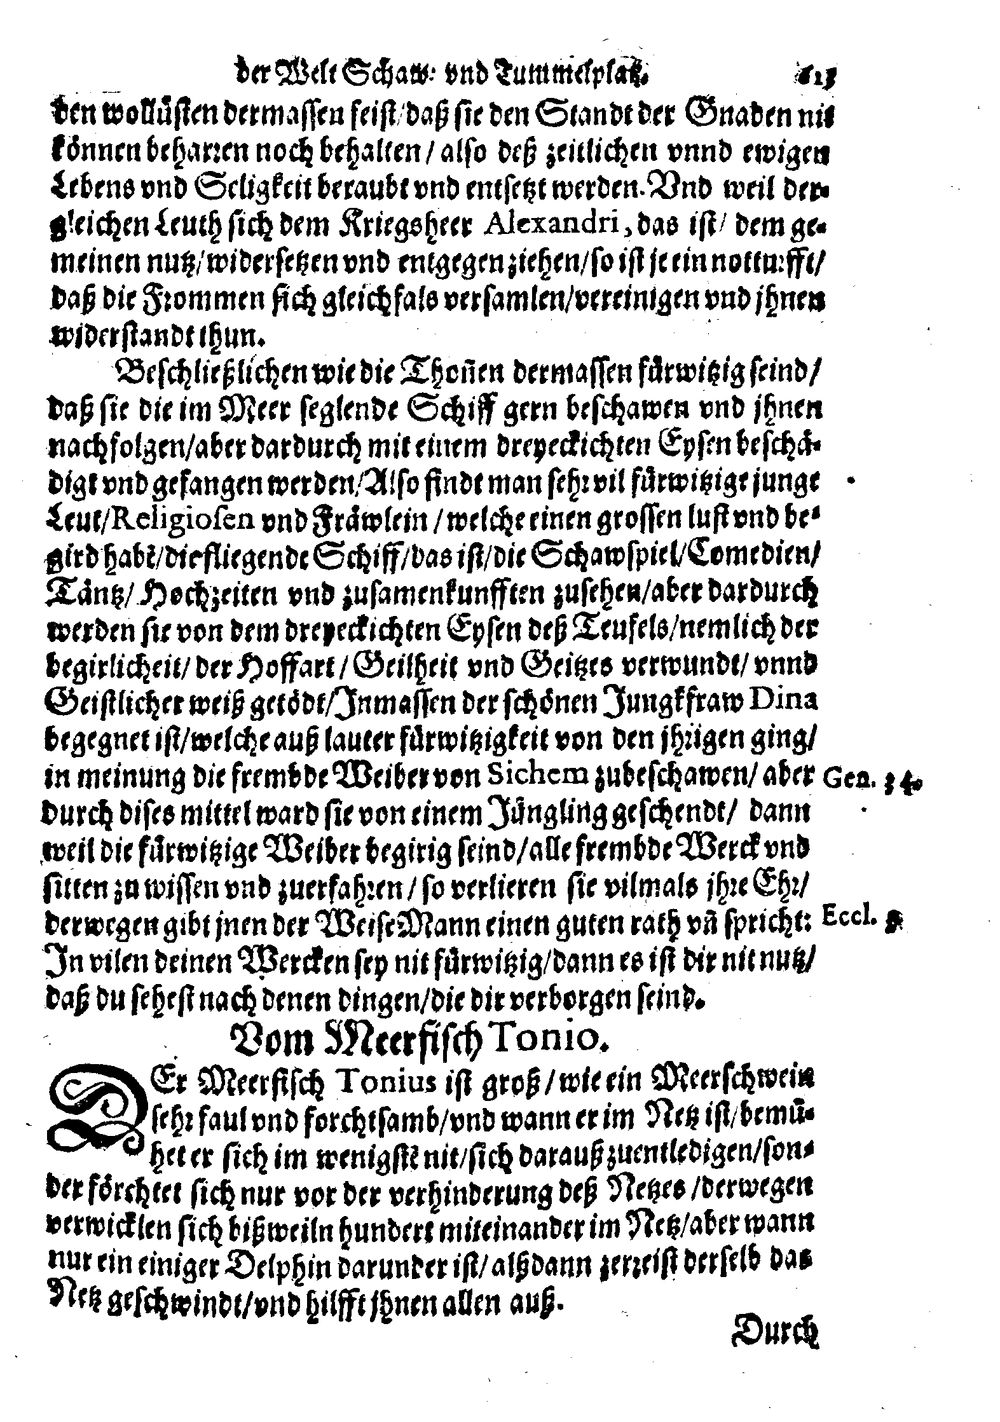 der Welt Schaw- vnd Tummelplatz. 613
den wollüsten dermassen feist/daß sie den Standt der Gnaden nit
können beharren noch behalten/ also deß zeitlichen vnnd ewigen
Lebens vnd Seligkeit beraubt vnd entsetzt werden. Vnd weil der-
gleichen Leuth sich dem Kriegsheer Alexandri, das ist/ dem ge-
meinen nutz/widersetzen vnd entgegen ziehen/so ist je ein notturfft/
daß die Frommen sich gleichfals versamlen/vereinigen vnd jhnen
widerstandt thun.
Beschließlichen wie die Thoñen dermassen fürwitzig seind/
daß sie die im Meer seglende Schiff gern beschawen vnd jhnen
nachfolgen/aber dardurch mit einem dreyeckichten Eysen beschä-
digt vnd gefangen werden/Also findt man sehr vil fürwitzige junge
Leut/Religiosen vnd Fräwlein/welche einen grossen lust vnd be-
gird habẽ/die fliegende Schiff/das ist/die Schawspiel/Comedien/
Täntz/ Hochzeiten vnd zusamenkunfften zusehen/aber dardurch
werden sie von dem dreyeckichten Eysen deß Teufels/nemlich der
begirlicheit/ der Hoffart/ Geilheit vnd Geitzes verwundt/ vnnd
Geistlicher weiß getödt/Inmassen der schönen Jungkfraw Dina
begegnet ist/welche auß lauter fürwitzigkeit von den jhrigen ging/
in meinung die frembde Weiber von Sichem zubeschawen/ aber Gen. 34.
durch dises mittel ward sie von einem Jüngling geschendt/ dann
weil die fürwitzige Weiber begirig seind/alle frembde Werck vnd
sitten zu wissen vnd zuerfahren/so verlieren sie vilmals jhre Ehr/
derwegen gibt jnen der Weise Mann einen guten rath vñ spricht: Eccl.
In vilen deinen Wercken sey nit fürwitzig/dann es ist dir nit nutz/
daß du sehest nach denen dingen/die dir verborgen seind.
Vom Meerfisch Tonio.
DEr Meerfisch Tonius ist groß/wie ein Meerschwein
sehr faul vnd forchtsamb/vnd wann er im Netz ist/bemü-
het er sich im wenigstẽ nit/sich darauß zuentledigen/son-
der förchtet sich nur vor der verhinderung deß Netzes/derwegen
verwicklen sich bißweiln hundert miteinander im Netz/aber wann
nur ein einiger Delphin darunder ist/alßdann zerreist derselb das
Netz geschwindt/vnd hilfft jhnen allen auß.
Durch